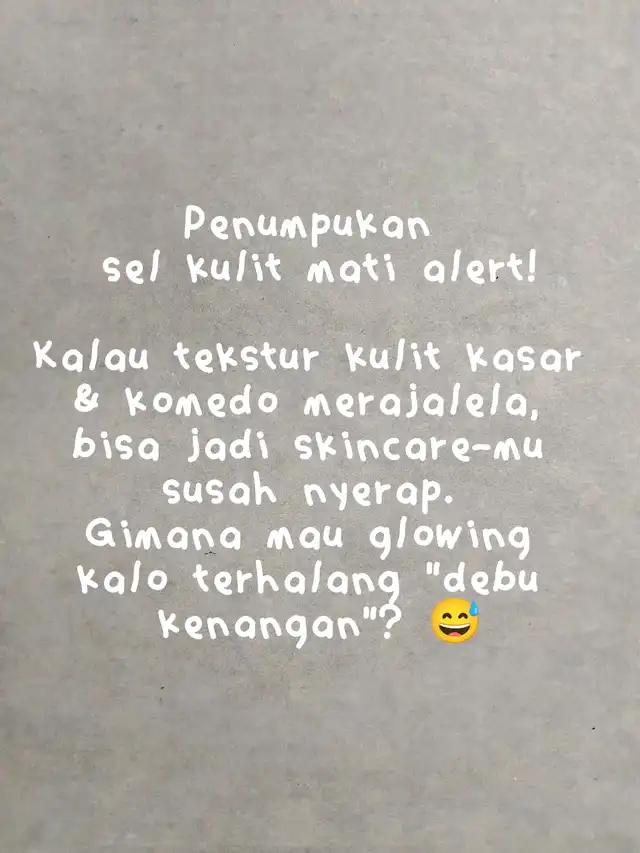 Penumpukan
sel kulit mati alert!
Kalau tekstur kulit kasar
& komedo merajalela,
bisa jadi skincare-mu
susah nyerap.
Gimana mau glowing
kalo terhalang "debu
kenangan"? 😅